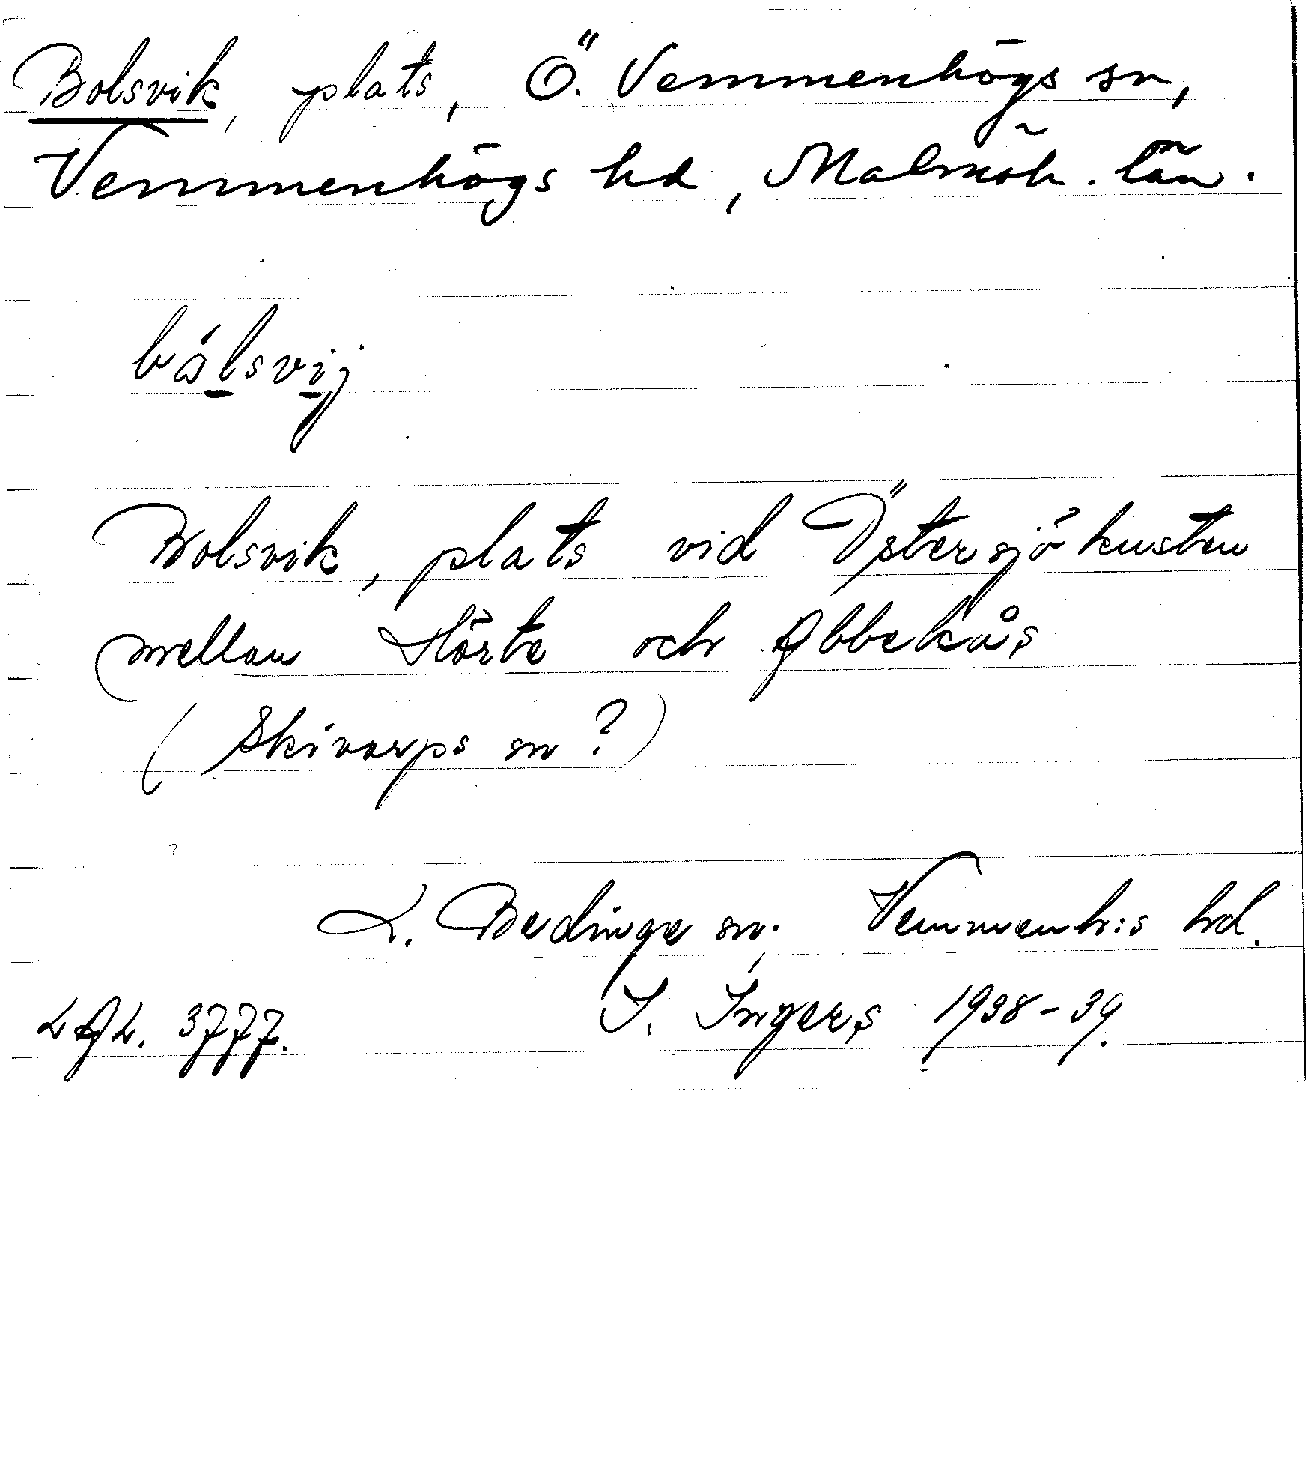 Bolsvik, plats, Ö. Vemmenhögs sn,
Vemmenhögs hd, Malmöh. län.
bålsvij
Bolsvik, plats vid Östersjökusten
mellan Hörte och Abbekås
(Skivarps sn?)
L. Bedinge sn. Vemmenh:s hd.
LAL. 3777. I. Ingers 1938-39.